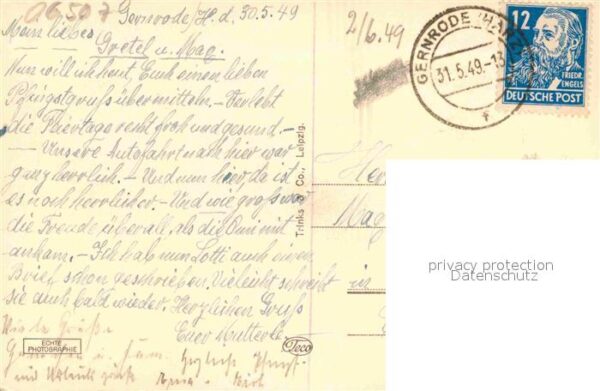 06507
Gernrode/H. d. 30.5.49
Mein lieber
Gretel u. Mag.
Nun will ich heut, Euch einen lieben
Pfingstgruß übermitteln. - Verlebt
die Feiertage recht froh und gesund. -
- Unsere Autofahrt nach hier war
ganz herrlich. - Und nun hier, da ist
es noch herrlicher. - Und wie groß war
die Freude überall, als die Omi mit
ankam. - Ich hab nun Lotti auch einen
Brief schon geschrieben. Vieleicht schreibt
sie auch bald wieder. Herzlichen Gruß
Euer Mutterle
Viele Grüße
ECHTE
PHOTOGRAPHIE
Trinks & Co., Leipzig.
Teco
2/6.49
GERNRODE (HARZ)
31.5.49-13
12
FRIEDR.
ENGELS
DEUTSCHE POST
Her
Mag
in
privacy protection
Datenschutz